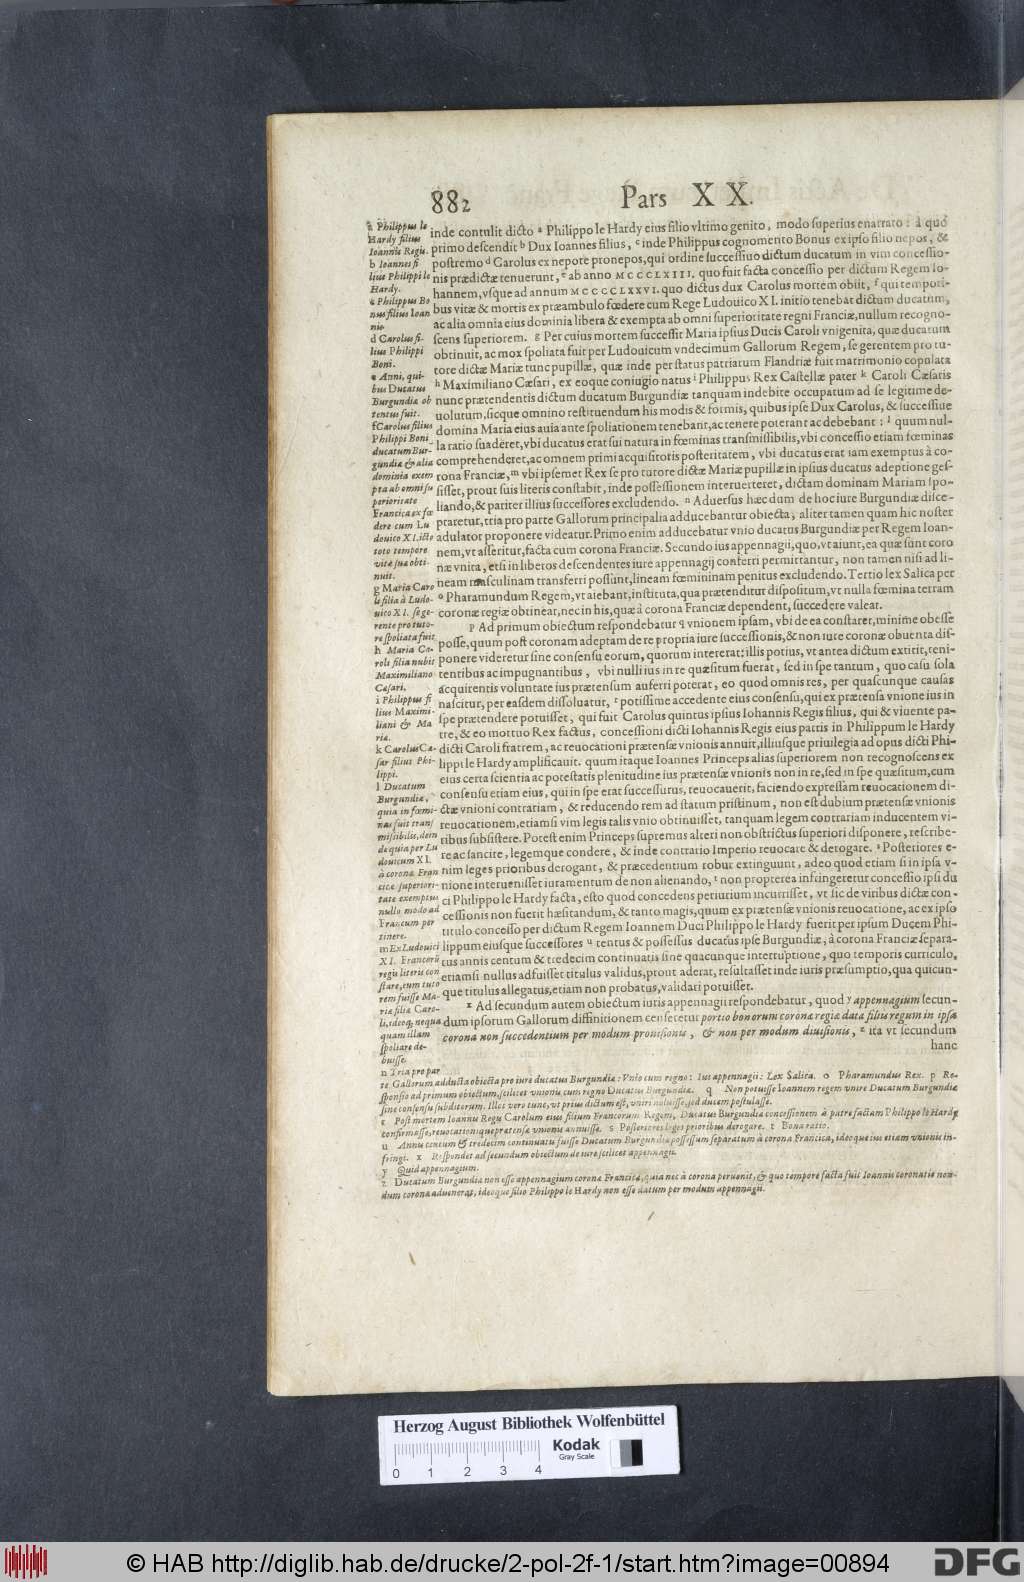 882 Pars XX.
inde contulit dicto ᵃ Philippo le Hardy eius filio vltimo genito, modo superius enarrato: à quo
primo descendit ᵇ Dux Ioannes filius, ᶜ inde Philippus cognomento Bonus ex ipso filio nepos, &
postremo ᵈ Carolus ex nepote pronepos, qui ordine successiuo dictum ducatum in vim concessio-
nis prædictæ tenuerunt, ᵉ ab anno MCCCLXIII, quo fuit facta concessio per dictum Regem Io-
hannem, vsque ad annum MCCCCLXXVI. quo dictus dux Carolus mortem obiit, ᶠ qui tempori-
bus vitæ & mortis ex præambulo fœdere cum Rege Ludouico XI. initio tenebat dictum ducatum,
ac alia omnia eius dominia libera & exempta ab omni superioritate regni Franciæ, nullum recogno-
scens superiorem. ᵍ Per cuius mortem successit Maria ipsius Ducis Caroli vnigenita, quæ ducatum
obtinuit, ac mox spoliata fuit per Ludouicum vndecimum Gallorum Regem, se gerentem pro tu-
tore dictæ Mariæ tunc pupillæ, quæ inde per status patriatum Flandriæ fuit matrimonio copulata
ʰ Maximiliano Cæsari, ex eoque coniugio natus ⁱ Philippus Rex Castellæ pater ᵏ Caroli Cæsaris
nunc prætendentis dictum ducatum Burgundiæ tanquam indebite occupatum ad se legitime de-
uolutum, sicque omnino restituendum his modis & formis, quibus ipse Dux Carolus, & successiue
domina Maria eius auia ante spoliationem tenebant, ac tenere poterant ac debebant: ˡ quum nul-
la ratio suaderet, vbi ducatus erat sui natura in fœminas transmissibilis, vbi concessio etiam fœminas
comprehenderet, ac omnem primi acquisitoris posteritatem, vbi ducatus erat iam exemptus à co-
rona Franciæ, ᵐ vbi ipsemet Rex se pro tutore dictæ Mariæ pupillæ in ipsius ducatus adeptione ges-
sisset, prout suis literis constabit, inde possessionem interuerteret, dictam dominam Mariam spo-
liando, & pariter illius successores excludendo. ⁿ Aduersus hæc dum de hoc iure Burgundiæ disce-
praretur, tria pro parte Gallorum principalia adducebantur obiecta, aliter tamen quam hic noster
adulator proponere videatur. Primo enim adducebatur vnio ducatus Burgundiæ per Regem Ioan-
nem, vt asseritur, facta cum corona Franciæ. Secundo ius appennagii, quo, vt aiunt, ea quæ sunt coro
næ vnita, etsi in liberos descendentes iure appennagij conferri permittantur, non tamen nisi ad li-
neam masculinam transferri possunt, lineam fœmininam penitus excludendo. Tertio lex Salica per
ᵒ Pharamundum Regem, vt aiebant, instituta, qua prætenditur dispositum, vt nulla fœmina terram
coronæ regiæ obtineat, nec in his, quæ à corona Franciæ dependent, succedere valeat.
ᵖ Ad primum obiectum respondebatur ᑫ vnionem ipsam, vbi de ea constaret, minime obesse
posse, quum post coronam adeptam de re propria iure successionis, & non iure coronæ obuenta dis-
ponere videretur sine consensu eorum, quorum intererat; illis potius, vt antea dictum extitit, reni-
tentibus ac impugnantibus, vbi nulli ius in re quæsitum fuerat, sed in spe tantum, quo casu sola
acquirentis voluntate ius prætensum auferri poterat, eo quod omnis res, per quascunque causas
nascitur, per easdem dissoluatur, ʳ potissime accedente eius consensu, qui ex prætensa vnione ius in
spe prætendere potuisset, qui fuit Carolus quintus ipsius Iohannis Regis filius, qui & viuente pa-
tre, & eo mortuo Rex factus, concessioni dicti Iohannis Regis eius patris in Philippum le Hardy
dicti Caroli fratrem, ac reuocationi prætensæ vnionis annuit, illiusque priuilegia ad opus dicti Phi-
lippi le Hardy amplificauit. quum itaque Ioannes Princeps alias superiorem non recognoscens ex
eius certa scientia ac potestatis plenitudine ius prætensæ vnionis non in re, sed in spe quæsitum, cum
consensu etiam eius, qui in spe erat successurus, reuocauerit, faciendo expressam reuocationem di-
ctæ vnioni contrariam, & reducendo rem ad statum pristinum, non est dubium prætensæ vnionis
reuocationem, etiamsi vim legis talis vnio obtinuisset, tanquam legem contrariam inducentem vi-
ribus subsistere. Potest enim Princeps supremus alteri non obstrictus superiori disponere, rescribe-
re ac sancire, legemque condere, & inde contrario Imperio reuocare & derogare. ˢ Posteriores e-
nim leges prioribus derogant, & præcedentium robur extinguunt, adeo quod etiam si in ipsa v-
nione interuenisset iuramentum de non alienando, ᵗ non propterea infringeretur concessio ipsi du
ci Philippo le Hardy facta, esto quod concedens periurium incurrisset, vt sic de viribus dictæ con-
cessionis non fuerit hæsitandum, & tanto magis, quum ex prætensæ vnionis reuocatione, ac ex ipso
titulo concesso per dictum Regem Ioannem Duci Philippo le Hardy fuerit per ipsum Ducem Phi-
lippum eiusque successores ᵘ tentus & possessus ducatus ipse Burgundiæ, à corona Franciæ separa-
tus annis centum & tredecim continuatis sine quacunque interruptione, quo temporis curriculo,
etiamsi nullus adfuisset titulus validus, prout aderat, resultasset inde iuris præsumptio, qua quicun-
que titulus allegatus, etiam non probatus, validari potuisset.
ˣ Ad secundum autem obiectum iuris appennagii respondebatur, quod ʸ appennagium secun-
dum ipsorum Gallorum diffinitionem censeretur portio bonorum coronæ regiæ data filiis regum in ipsa
corona non succedentium per modum prouisionis, & non per modum diuisionis, ᶻ ita vt secundum
hanc
a Philippus le
Hardy filius
Ioannis Regis.
b Ioannes fi
lius Philippi le
Hardy.
c Philippus Bo
nus filius Ioan
nis.
d Carolus fi-
lius Philippi
Boni.
e Anni, qui-
bus Ducatus
Burgundiæ ob
tentus fuit.
f Carolus filius
Philippi Boni
ducatum Bur-
gundiæ & alia
dominia exem
pta ab omni su
perioritate
Francica ex fœ
dere cum Lu
douico XI. icto
toto tempore
vitæ suæ obti-
nuit.
g Maria Caro
li filia à Ludo-
uico XI. se ge-
rente pro tuto-
re spoliata fuit
h Maria Ca-
roli filia nubit
Maximiliano
Cæsari.
i Philippus fi
lius Maximi-
liani & Ma
riæ.
k Carolus Cæ-
sar filius Phi-
lippi.
l Ducatum
Burgundiæ,
quia in fœmi-
nas fuit trans
missibilis, dein
de quia per Lu
douicum XI.
à corona Fran
cica superiori-
tate exemptus
nullo modo ad
Francum per
tinere.
m Ex Ludouici
XI. Francorū
regis literis con
stare, eum tuto
rem fuisse Ma-
riæ filiæ Caro-
li, ideoq; nequa
quam illam
spoliare de-
buisse.
n Tria pro par
te Gallorum adducta obiecta pro iure ducatus Burgundiæ: Vnio cum regno: Ius appennagii: Lex Salica. o Pharamundus Rex. p Re-
sponsio ad primum obiectum, scilicet vnionis cum regno Ducatus Burgundiæ. q Non potuisse Ioannem regem vnire Ducatum Burgundiæ
sine consensu subditorum. Illos vero tunc, vt prius dictum est, vniri noluisse, sed ducem postulasse.
r Post mortem Ioannis Regis Carolum eius filium Francorum Regem, Ducatus Burgundiæ concessionem à patre factam Philippo le Hardy
confirmasse, reuocationique prætensæ vnionis annuisse. s Posteriores leges prioribus derogare. t Bona ratio.
u Annis centum & tredecim continuatis fuisse Ducatum Burgundiæ possessum separatum à corona Francica, ideoque ius etiam vnionis in-
fringi. x Respondet ad secundum obiectum de iure scilicet appennagii.
y Quid appennagium.
z Ducatum Burgundiæ non esse appennagium coronæ Francicæ, quia nec à corona peruenit, & quo tempore facta fuit Ioannis coronatio non-
dum corona aduenerat, ideoque filio Philippo le Hardy non esse datum per modum appennagii.
Herzog August Bibliothek Wolfenbüttel
Kodak
Gray Scale
0 1 2 3 4
© HAB http://diglib.hab.de/drucke/2-pol-2f-1/start.htm?image=00894
DFG